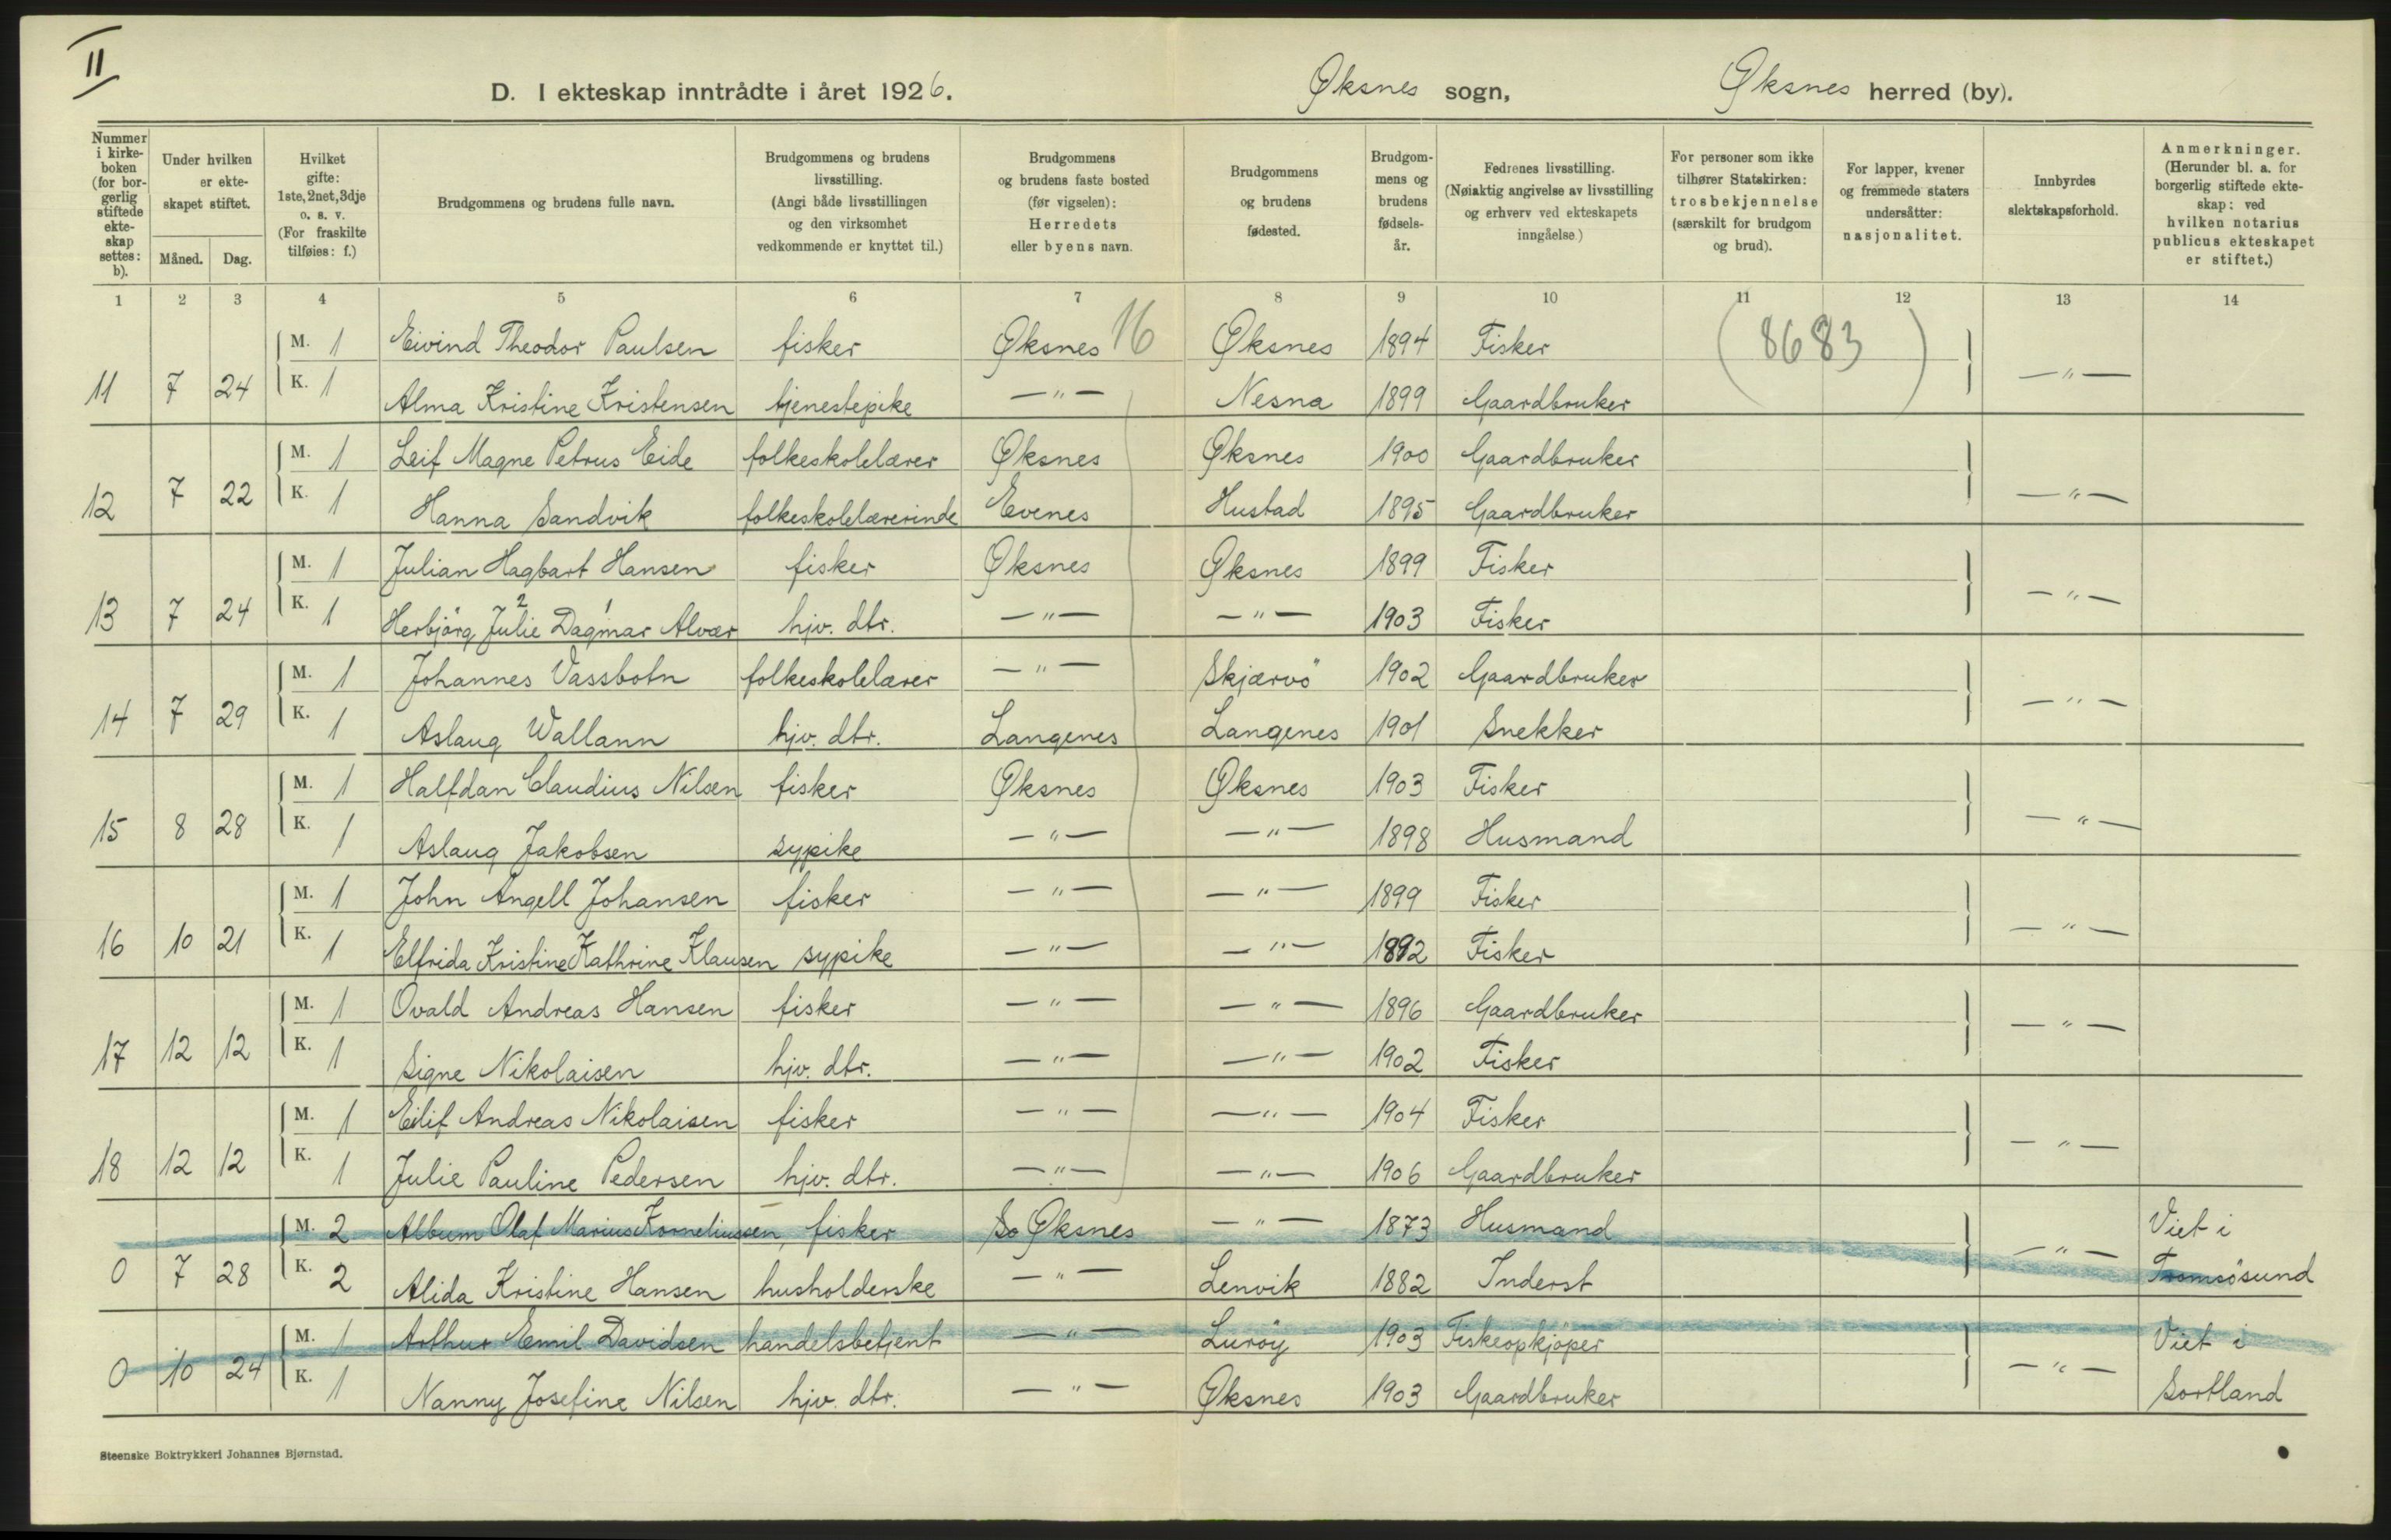 II
D. I ekteskap inntrådte i året 1926. Øksnes sogn, Øksnes herred (by).
Nummer i kirke- boken (for bor- gerlig stiftede ekte- skap settes: b).
Under hvilken er ekte- skapet stiftet.
Måned. Dag.
Hvilket gifte: 1ste, 2net, 3dje o. s. v. (For fraskilte tilføies: f.)
Brudgommens og brudens fulle navn.
Brudgommens og brudens livsstilling. (Angi både livsstillingen og den virksomhet vedkommende er knyttet til.)
Brudgommens og brudens faste bosted (før vigselen): Herredets eller byens navn.
Brudgommens og brudens fødested.
Brudgom- mens og brudens fødsels- år.
Fedrenes livsstilling. (Nøiaktig angivelse av livsstilling og erhverv ved ekteskapets inngåelse.)
For personer som ikke tilhører Statskirken: trosbekjennelse (særskilt for brudgom og brud).
For lapper, kvener og fremmede staters undersåtter: nasjonalitet.
Innbyrdes slektskapsforhold.
Anmerkninger. (Herunder bl. a. for borgerlig stiftede ekte- skap: ved hvilken notarius publicus ekteskapet er stiftet.)
1 2 3 4 5 6 7 8 9 10 11 12 13 14
M. 1 Eivind Theodor Paulsen fisker Øksnes 16 Øksnes 1894 Fisker (8683)
11 7 24 K. 1 Alma Kristine Kristensen tjenestepike —"— Nesna 1899 Gaardbruker —"—
M. 1 Leif Magne Petrus Eide folkeskolelærer Øksnes Øksnes 1900 Gaardbruker
12 7 22 K. 1 Hanna Sandvik folkeskolelærerinde Evenes Hustad 1895 Gaardbruker —"—
M. 1 Julian Hagbart Hansen fisker Øksnes Øksnes 1899 Fisker
2 1
13 7 24 K. 1 Herbjörg Julie Dagmar Alvær hjv. dtr. —"— —"— 1903 Fisker —"—
M. 1 Johannes Vassbotn folkeskolelærer —"— Skjærvö 1902 Gaardbruker
14 7 29 K. 1 Aslaug Wallann hjv. dtr. Langenes Langenes 1901 Snekker —"—
M. 1 Halfdan Claudius Nilsen fisker Øksnes Øksnes 1903 Fisker
15 8 28 K. 1 Aslaug Jakobsen sypike —"— —"— 1898 Husmand —"—
M. 1 John Angell Johansen fisker —"— —"— 1899 Fisker
16 10 21 K. 1 Elfrida Kristine Kathrine Klausen sypike —"— —"— 1892 Fisker —"—
M. 1 Ovald Andreas Hansen fisker —"— —"— 1896 Gaardbruker
17 12 12 K. 1 Signe Nikolaisen hjv. dtr. —"— —"— 1902 Fisker —"—
M. 1 Eilif Andreas Nikolaisen fisker —"— —"— 1904 Fisker
18 12 12 K. 1 Julie Pauline Pedersen hjv. dtr. —"— —"— 1906 Gaardbruker —"—
M. 2 Album Olaf Marius Korneliussen, fisker Øksnes —"— 1873 Husmand Viet i
0 7 28 K. 2 Alida Kristine Hansen husholderske —"— Lenvik 1882 Inderst —"— Tromsösund
M. 1 Arthur Emil Davidsen handelsbetjent —"— Luröy 1903 Fiskeopkjöper Viet i
0 10 24 K. 1 Nanny Josefine Nilsen hjv. dtr. —"— Øksnes 1903 Gaardbruker —"— Sortland
Steenske Boktrykkeri Johannes Bjørnstad.